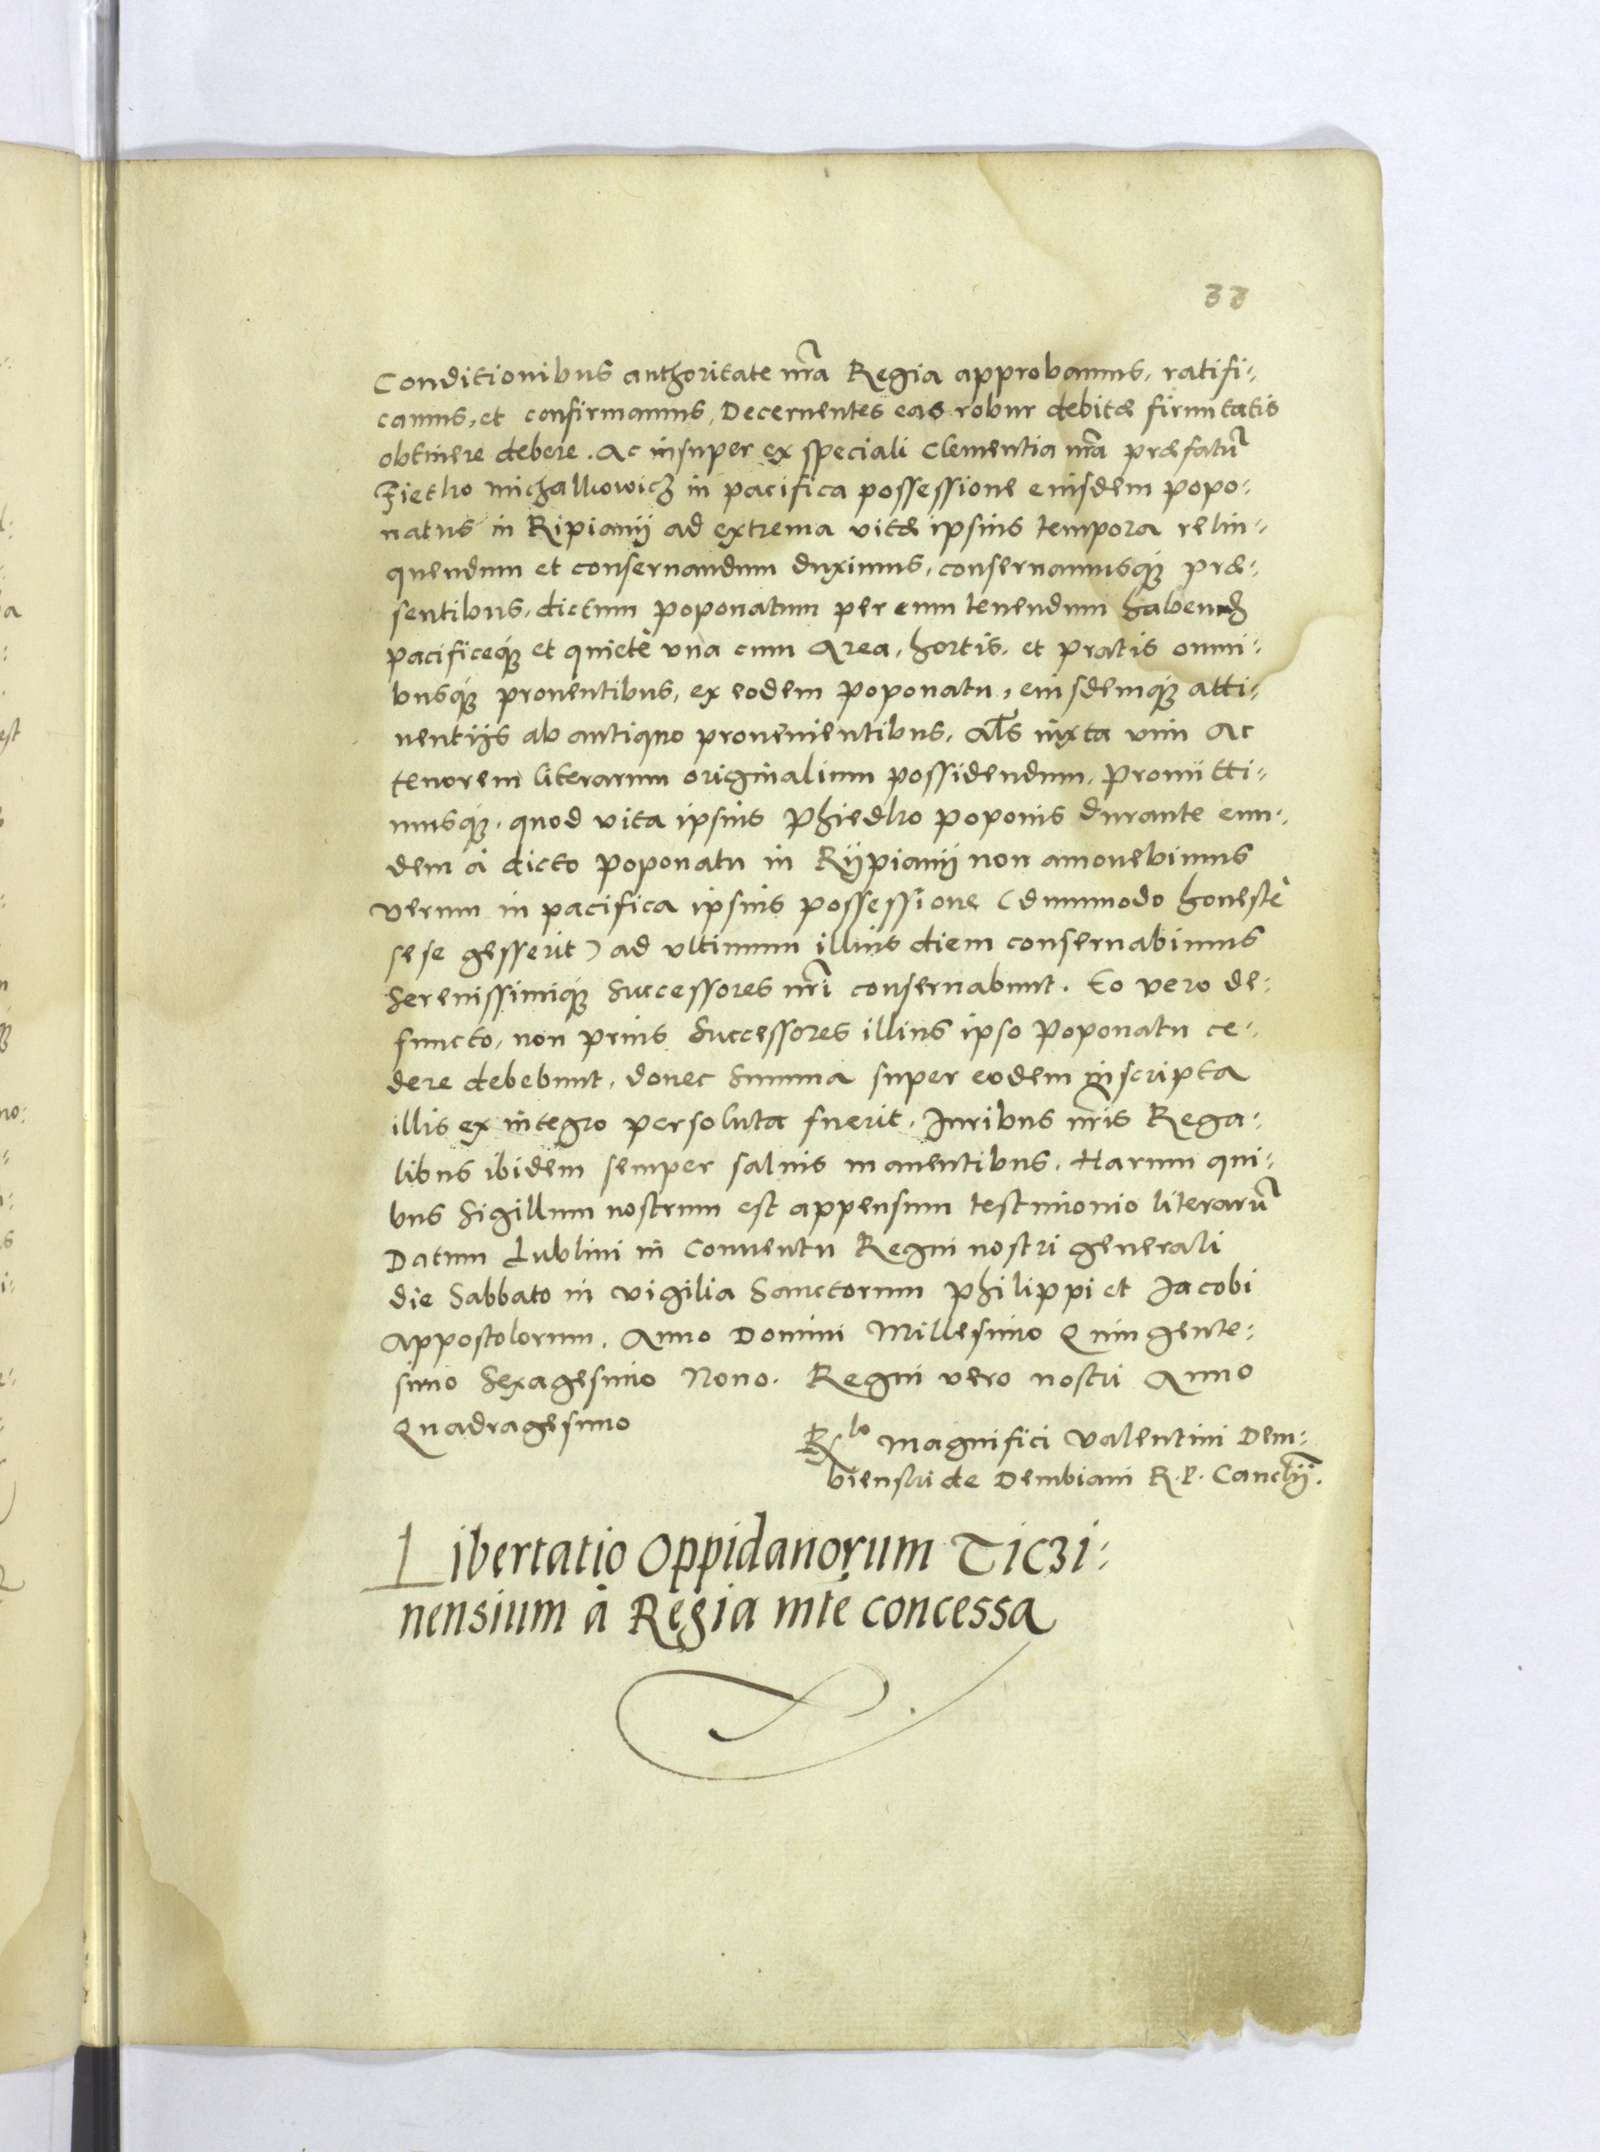 33
Conditionibus authoritate nr̃a Regia approbamus, ratifi-
camus, et confirmamus, Decernentes eas robur debitæ firmitatis
obtinere debere. Ac insuper ex speciali Clementia nr̃a præfatũ
Fiethko Michalkowicz in pacifica possessione eiusdem popo-
natus in Ripianij ad extrema vitæ ipsius tempora relin-
quendum et conseruandum duximus, conseruamusq́ præ-
sentibus, dictum poponatum per eum tenendum habend
pacificeq́ et quietè vna cum Area, hortis, et pratis omni-
busq́ prouentibus, ex eodem poponatu, eiusdemq́ atti-
nentijs ab antiquo prouenientibus, Al̃s iuxta vim Ac
tenorem literarum originalium possidendum, Promitti-
musq́, quod vita ipsius Phiedko poponis durante eun-
dem à dicto poponatu in Rÿpianij non amouebimus
verum in pacifica ipsius possessione (dummodo honestè
sese gesserit) ad vltimum illius diem conseruabimus
Serenissimiq́ Successores nr̃i conseruabunt. Eo vero de-
functo, non prius Successores illius ipso Poponatu ce-
dere debebunt, donec Summa super eodem inscripta
illis ex integro persoluta fuerit, Iuribus nr̃is Rega-
libus ibidem semper saluis manentibus, Harum qui-
bus Sigillum nostrum est appensum testimonio literarũ
Datum Lublini in Conuentu Regni nostri generali
die Sabbato in vigilia Sanctorum Philippi et Jacobi
Appostolorum, Anno Domini Millesimo Quingente-
simo Sexagesimo Nono. Regni vero nostri Anno
Quadragesimo
Rlo Magnifici Valentini Dem-
bienski de Dembiani R. P. Cancl̃ij.
Libertatio Oppidanorum Ticzi-
nensium à Regia mt̃e concessa